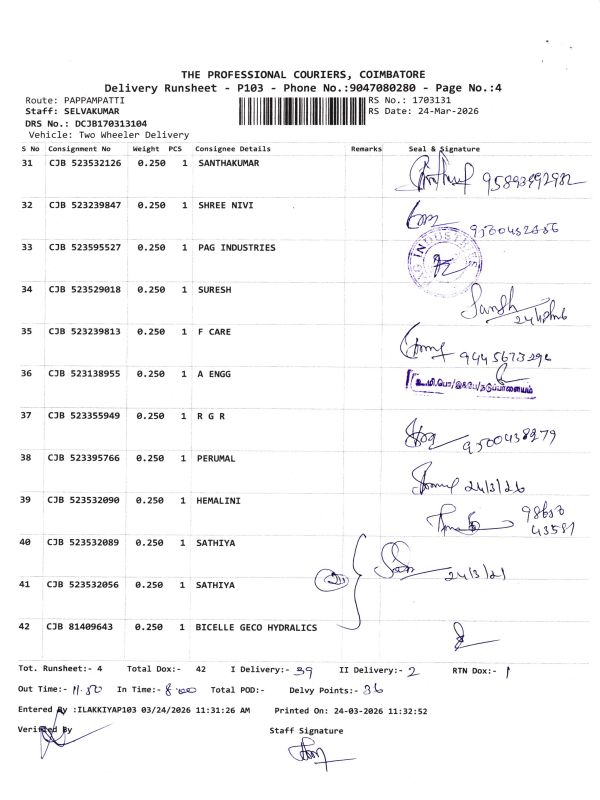 THE PROFESSIONAL COURIERS, COIMBATORE
Delivery Runsheet - P103 - Phone No.:9047080280 - Page No.:4
Route: PAPPAMPATTI RS No.: 1703131
Staff: SELVAKUMAR RS Date: 24-Mar-2026
DRS No.: DCJB170313104
Vehicle: Two Wheeler Delivery
S No Consignment No Weight PCS Consignee Details Remarks Seal & Signature
31 CJB 523532126 0.250 1 SANTHAKUMAR
32 CJB 523239847 0.250 1 SHREE NIVI
33 CJB 523595527 0.250 1 PAG INDUSTRIES
34 CJB 523529018 0.250 1 SURESH
35 CJB 523239813 0.250 1 F CARE
36 CJB 523138955 0.250 1 A ENGG
37 CJB 523355949 0.250 1 R G R
9500438279
38 CJB 523395766 0.250 1 PERUMAL
24/3/26
39 CJB 523532090 0.250 1 HEMALINI
98650
43581
40 CJB 523532089 0.250 1 SATHIYA
24/3/21
41 CJB 523532056 0.250 1 SATHIYA
42 CJB 81409643 0.250 1 BICELLE GECO HYDRALICS
Tot. Runsheet:- 4 Total Dox:- 42 I Delivery:- 39 II Delivery:- 2 RTN Dox:- 1
Out Time:- 11.50 In Time:- 8.00 Total POD:- Delvy Points:- 36
Entered By :ILAKKIYAP103 03/24/2026 11:31:26 AM Printed On: 24-03-2026 11:32:52
Verified By Staff Signature